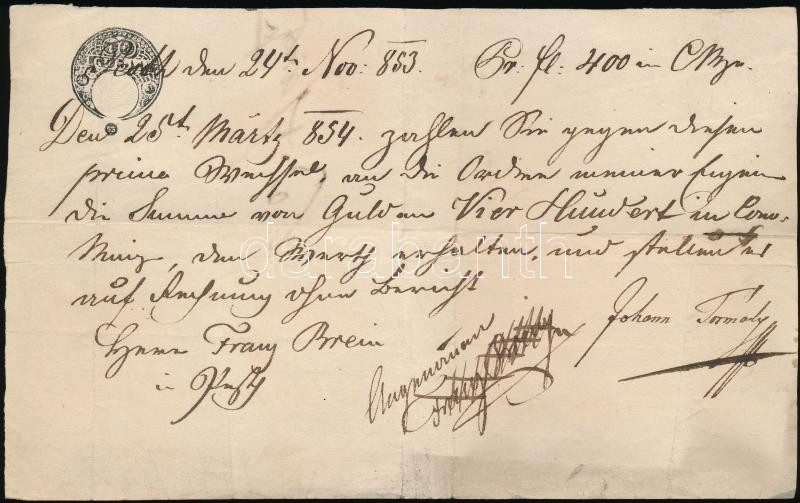 Pesth den 24t. Nov: 853. Pr. fl: 400 in CMze.
Den 25t. Märtz 854. zahlen Sie gegen diesen
prima Wechsel, an die Ordre meiner Eigen
die Summe von Gulden Vier Hundert in Conv.
Münz, den Werth erhalten, und stellen es
auf Rechnung ohne Bericht
Herrn Franz Brein
in Pesth
Angenommen
Johann Tormaly
darabanth